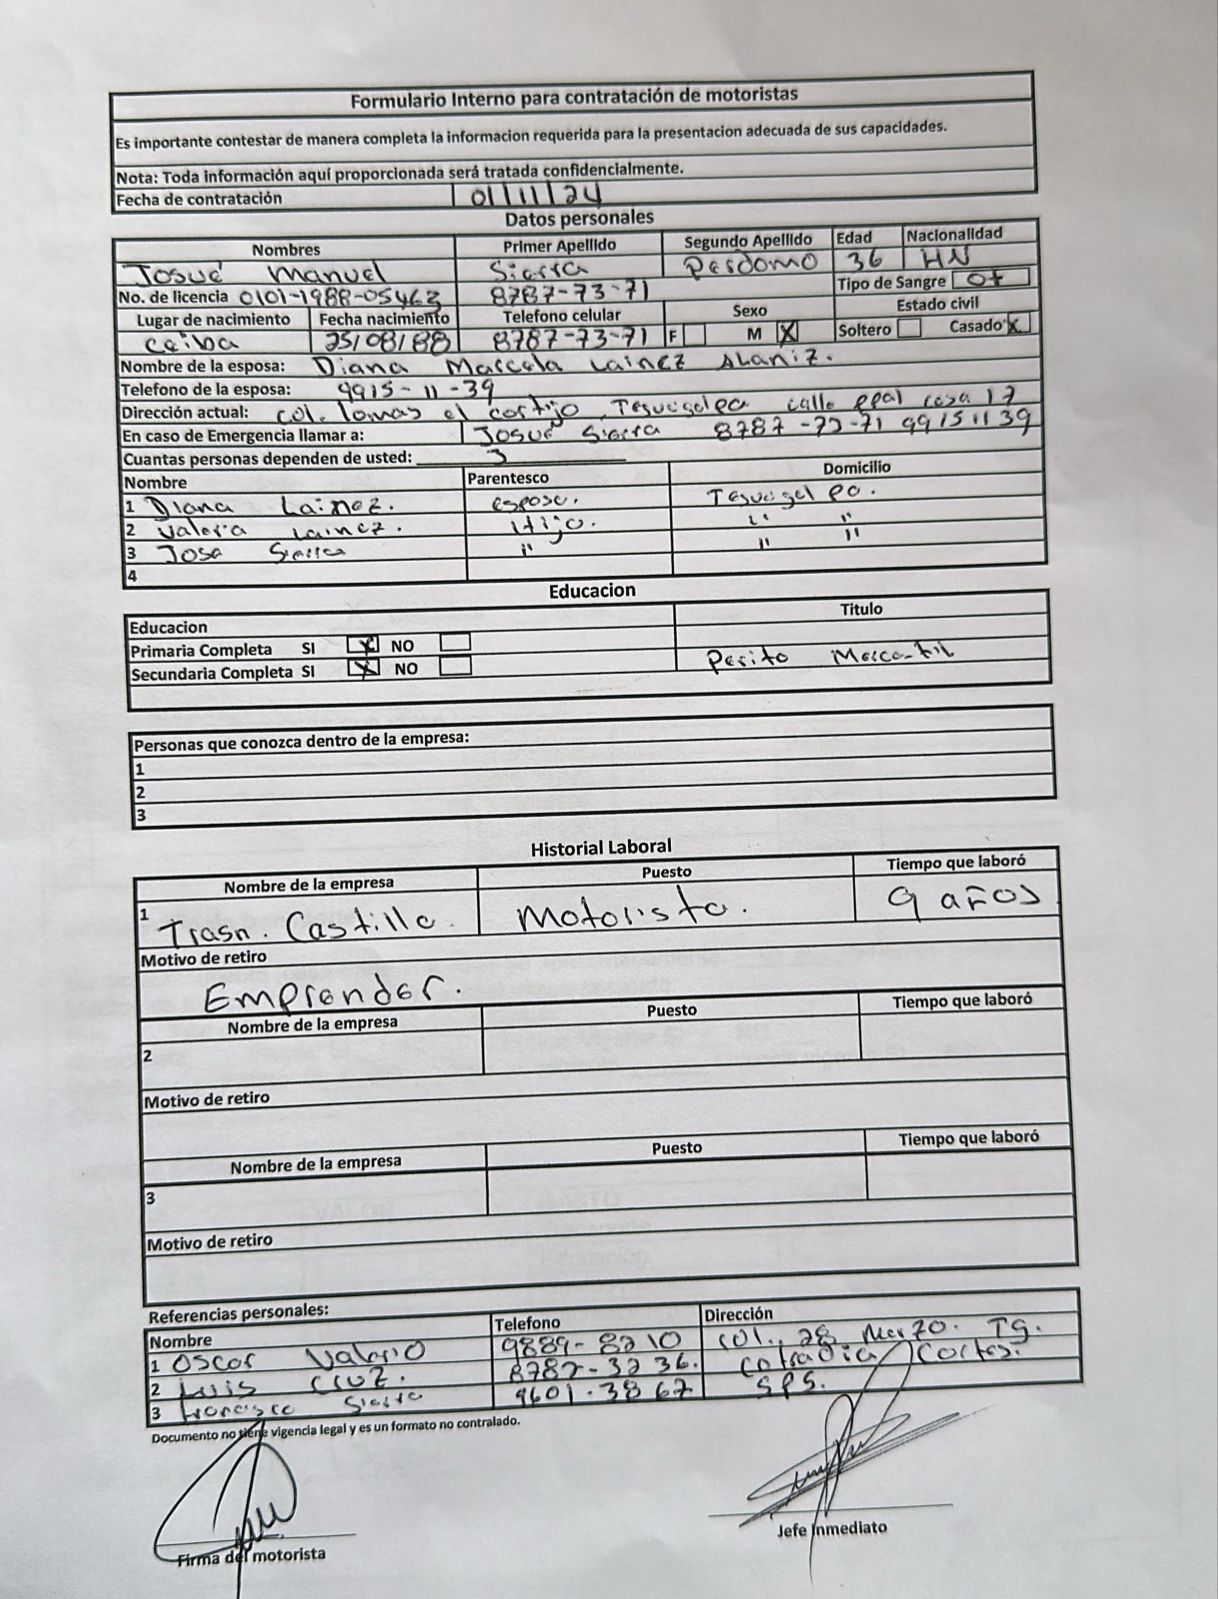 Formulario Interno para contratación de motoristas
Es importante contestar de manera completa la informacion requerida para la presentacion adecuada de sus capacidades.
Nota: Toda información aquí proporcionada será tratada confidencialmente.
Fecha de contratación 01/11/24
Datos personales
Nombres Primer Apellido Segundo Apellido Edad Nacionalidad
Josué Manuel Sierra Perdomo 36 HN
No. de licencia 0101-1988-05463 8787-73-71 Tipo de Sangre O+
Lugar de nacimiento Fecha nacimiento Telefono celular Sexo Estado civil
Ceiba 25/08/88 8787-73-71 F M X Soltero Casado X
Nombre de la esposa: Diana Marcela Lainez Alaniz.
Telefono de la esposa: 9915-11-39
Dirección actual: col. Lomas el cortijo, Tegucigalpa calle ppal casa 17
En caso de Emergencia llamar a: Josué Sierra 8787-73-71 99151139
Cuantas personas dependen de usted: 3
Nombre Parentesco Domicilio
1 Diana Lainez. esposa. Tegucigalpa.
2 Valeria Lainez. Hija. " "
3 Jose Sierra " " "
4
Educacion
Educacion Titulo
Primaria Completa SI X NO
Secundaria Completa SI X NO Perito Mercantil
Personas que conozca dentro de la empresa:
1
2
3
Historial Laboral
Nombre de la empresa Puesto Tiempo que laboró
1 Trasn. Castillo. Motorista. 9 años
Motivo de retiro
Emprender.
Nombre de la empresa Puesto Tiempo que laboró
2
Motivo de retiro
Nombre de la empresa Puesto Tiempo que laboró
3
Motivo de retiro
Referencias personales:
Nombre Telefono Dirección
1 Oscar Valerio 9889-8210 Col. 28 Marzo. Tg.
2 Luis Cruz. 8787-3236. Cofradia Cortes.
3 Francisco Sierra 9601-3867 S.P.S.
Documento no tiene vigencia legal y es un formato no contralado.
Jefe Inmediato
Firma del motorista